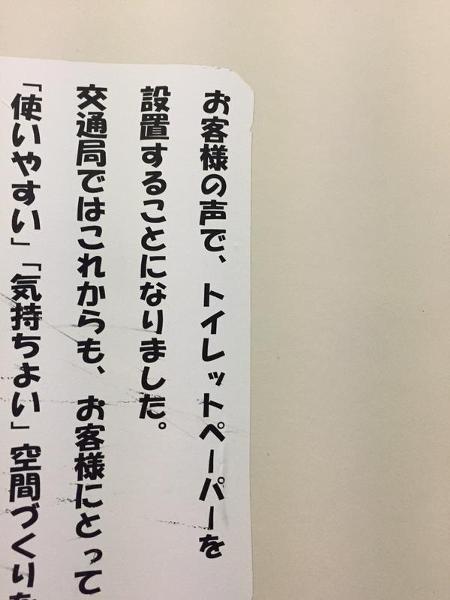 お客様の声で、トイレットペーパーを
設置することになりました。
交通局ではこれからも、お客様にとって
「使いやすい」「気持ちよい」空間づくりを